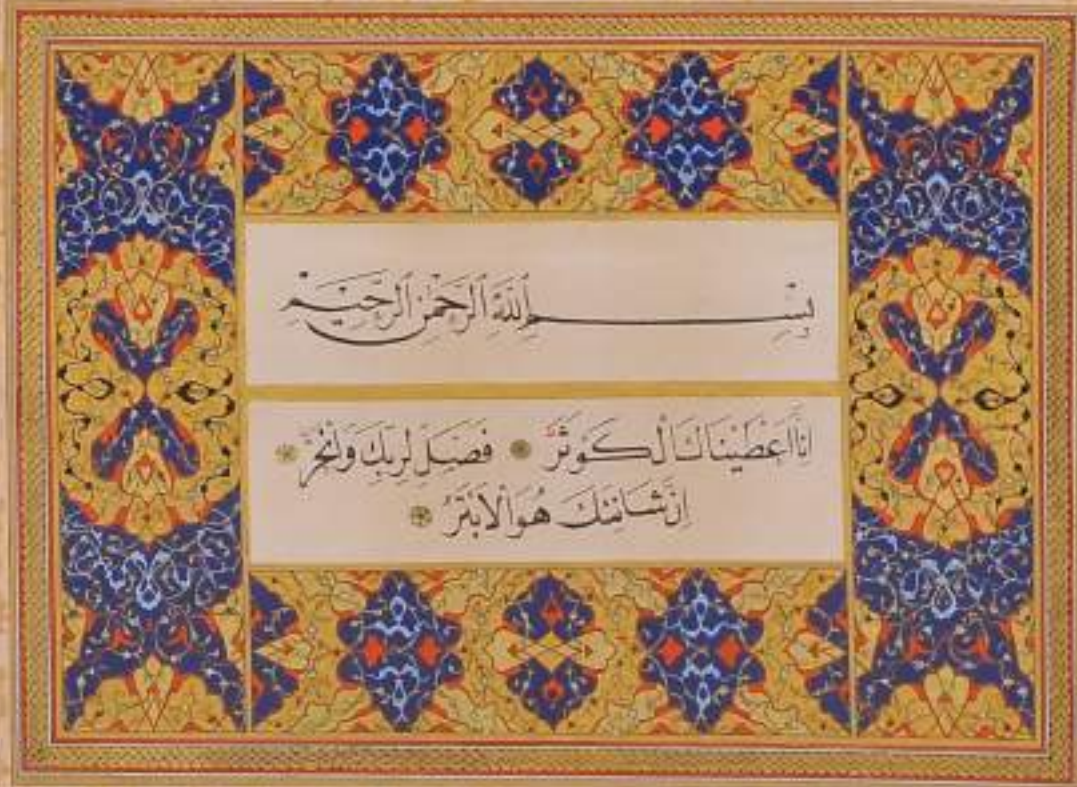 بِسْمِ اللّٰهِ الرَّحْمٰنِ الرَّحِيْمِ
اِنَّٓا اَعْطَيْنَاكَ الْكَوْثَرَ ۞ فَصَلِّ لِرَبِّكَ وَانْحَرْ ۞
اِنَّ شَانِئَكَ هُوَ الْاَبْتَرُ ۞